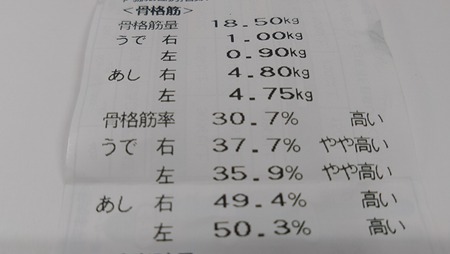 <骨格筋>
骨格筋量 18.50kg
うで 右 1.00kg
左 0.90kg
あし 右 4.80kg
左 4.75kg
骨格筋率 30.7% 高い
うで 右 37.7% やや高い
左 35.9% やや高い
あし 右 49.4% 高い
左 50.3% 高い